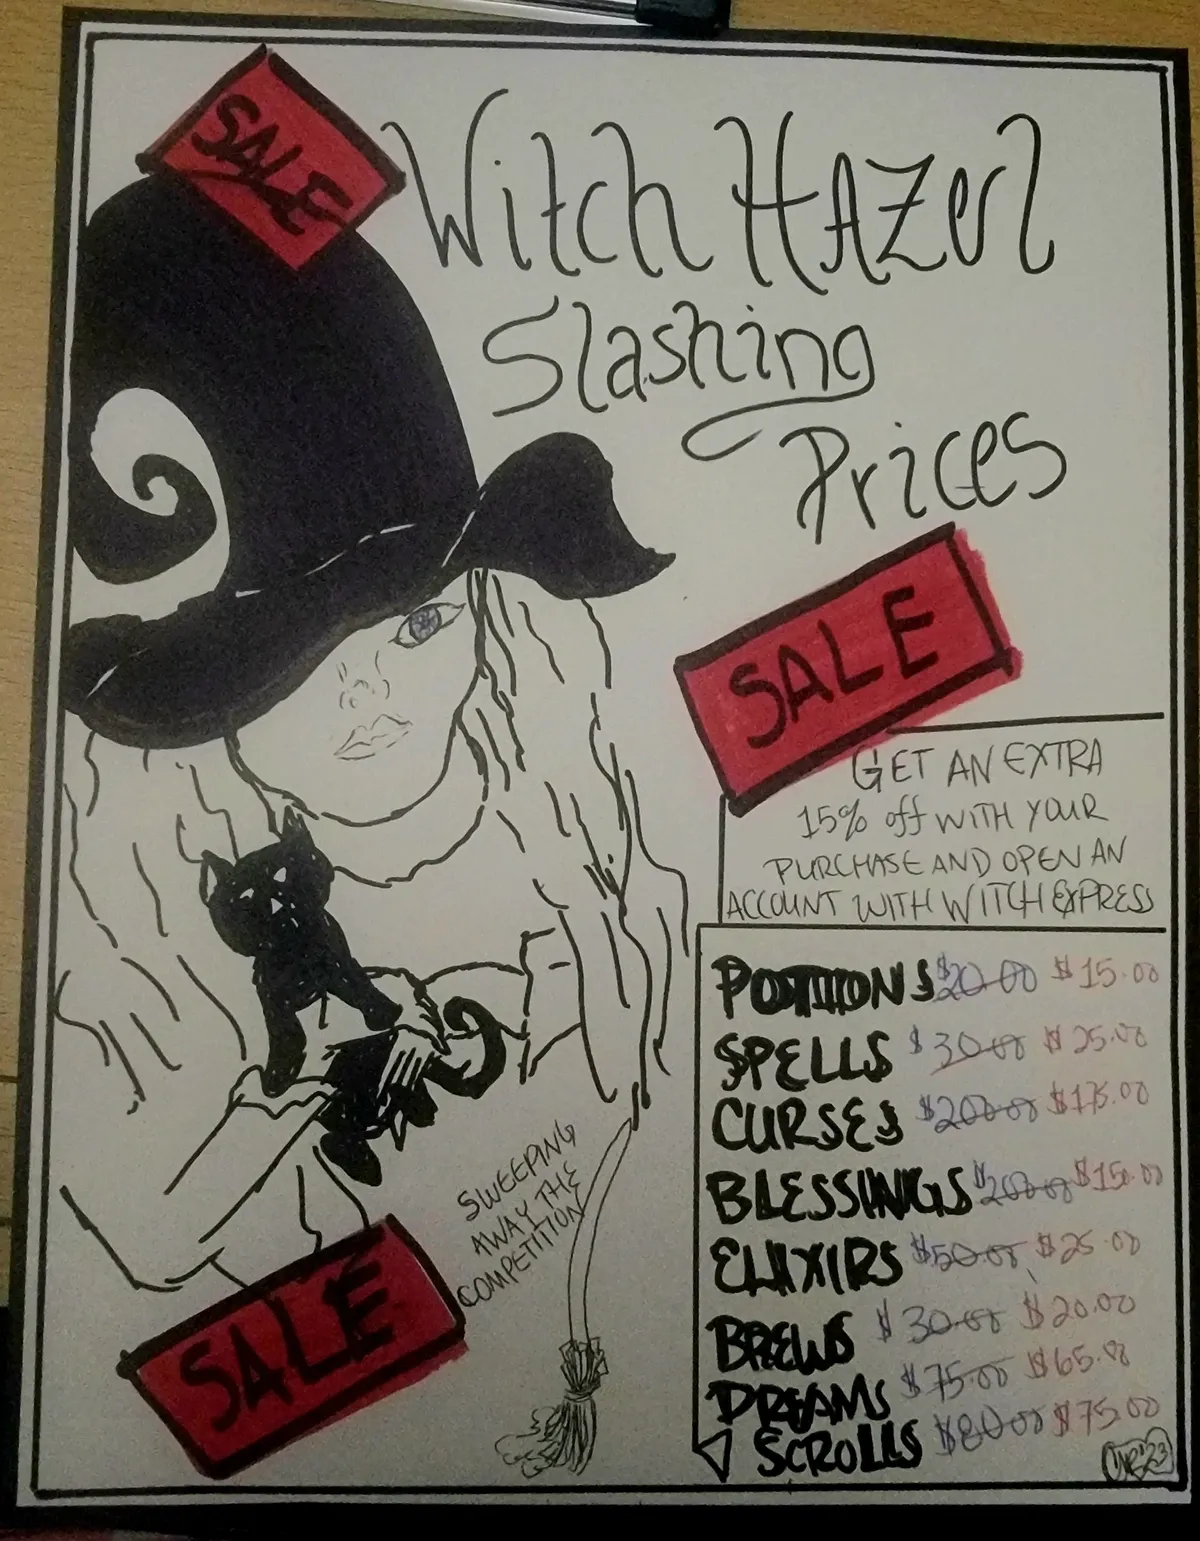 SALE
Witch HAZEl
Slashing
Prices
SALE
GET AN EXTRA
15% off WITH YOUR
PURCHASE AND OPEN AN
ACCOUNT WITH WITCH EXPRESS
POTIIONS $20.00 $15.00
SPELLS $30.00 $25.00
CURSES $200.00 $175.00
BLESSINGS $200.00 $150.00
ELIXIRS $50.00 $25.00
BREWS $30.00 $20.00
DREAMS $75.00 $65.00
SCROLLS $80.00 $75.00
SWEEPING
AWAY THE
COMPETITION
SALE